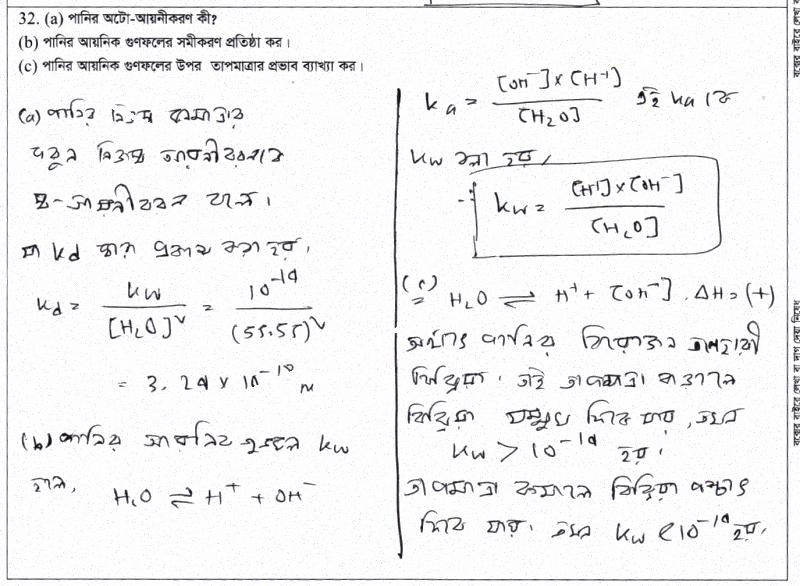 32. (a) পানির অটো-আয়নীকরণ কী?
(b) পানির আয়নিক গুণফলের সমীকরণ প্রতিষ্ঠা কর।
(c) পানির আয়নিক গুণফলের উপর তাপমাত্রার প্রভাব ব্যাখ্যা কর।
(a) পানির নিজস্ব
দরুন নিজস্ব আয়নীকরনকে
স্ব-আয়নীকরন বলে।
যা Kd দ্বারা প্রকাশ করা হয়,
Kd = Kw / [H₂O]² = 10⁻¹⁴ / (55.55)²
= 3.24 × 10⁻¹⁸ M
(b) পানির আয়নিক গুনফল Kw
হলে,
H₂O ⇌ H⁺ + OH⁻
Ka = [OH⁻] × [H⁺] / [H₂O] এই Ka কে
Kw বলা হয়,
∴ Kw = [H⁺] × [OH⁻] / [H₂O]
(c) H₂O ⇌ H⁺ + [OH⁻], ΔH = (+)
অর্থাৎ পানির বিয়োজন তাপহারী
বিক্রিয়া। তাই তাপমাত্রা বাড়ালে
বিক্রিয়া সম্মুখ দিকে যায়, তখন
Kw > 10⁻¹⁴ হয়।
তাপমাত্রা কমালে বিক্রিয়া পশ্চাৎ
দিকে যায়। তখন Kw < 10⁻¹⁴ হয়,